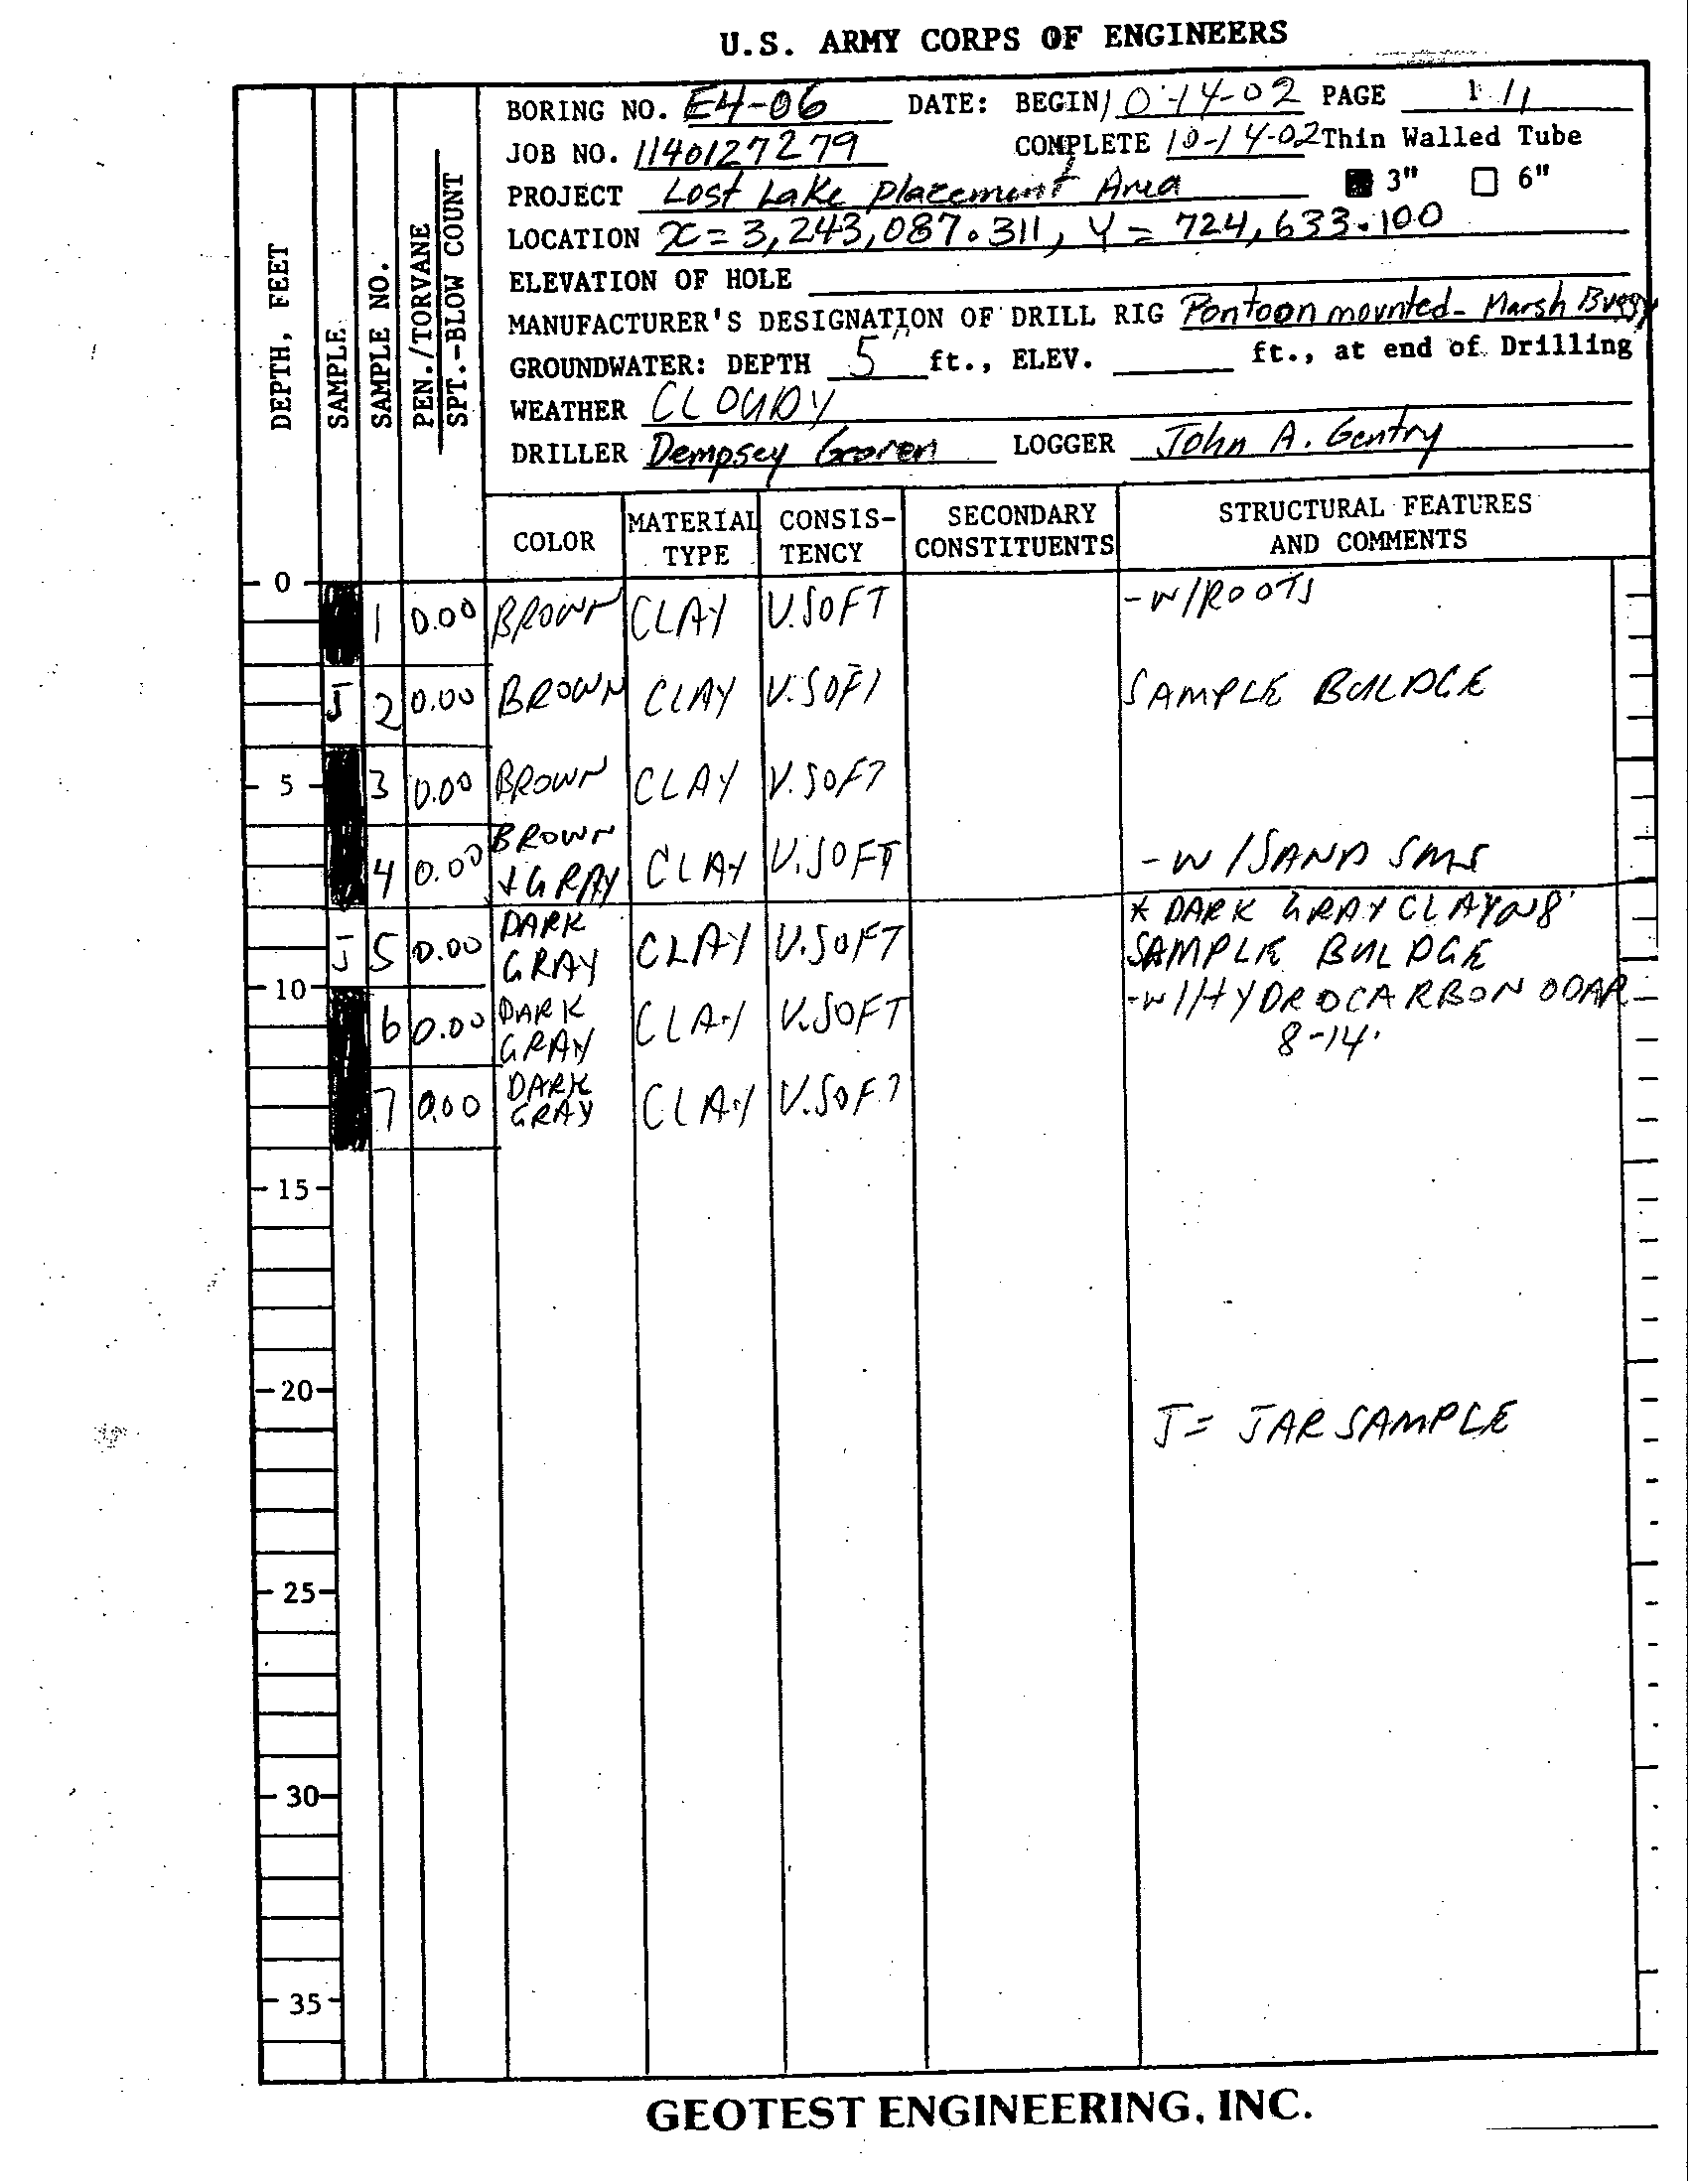 U.S. ARMY CORPS OF ENGINEERS
BORING NO. E4-06 DATE: BEGIN 10-14-02 PAGE 1/1
JOB NO. 1140127279 COMPLETE 10-14-02 Thin Walled Tube
PROJECT Lost Lake Placement Area 3" 6"
LOCATION X=3,243,087.311, Y=724,633.100
ELEVATION OF HOLE
MANUFACTURER'S DESIGNATION OF DRILL RIG Pontoon mounted- Marsh Buggy
GROUNDWATER: DEPTH 5 ft., ELEV. ft., at end of Drilling
WEATHER CLOUDY
DRILLER Dempsey LOGGER John A. Gentry
DEPTH, FEET
SAMPLE
SAMPLE NO.
PEN./TORVANE
SPT.-BLOW COUNT
COLOR MATERIAL TYPE CONSIS-TENCY SECONDARY CONSTITUENTS STRUCTURAL FEATURES AND COMMENTS
0
1 0.00 BROWN CLAY V.SOFT -W/ROOTS
J 2 0.00 BROWN CLAY V.SOFT SAMPLE BULDGE
5 3 0.00 BROWN CLAY V.SOFT
4 0.00 BROWN +GRAY CLAY V.SOFT -W/SAND SMS
* DARK GRAY CLAY @ 8'
J 5 0.00 DARK GRAY CLAY V.SOFT SAMPLE BULDGE
10 -W/HYDROCARBON ODAR
6 0.00 DARK GRAY CLAY V.SOFT 8-14'
7 0.00 DARK GRAY CLAY V.SOFT
15
20
J= JAR SAMPLE
25
30
35
GEOTEST ENGINEERING, INC.